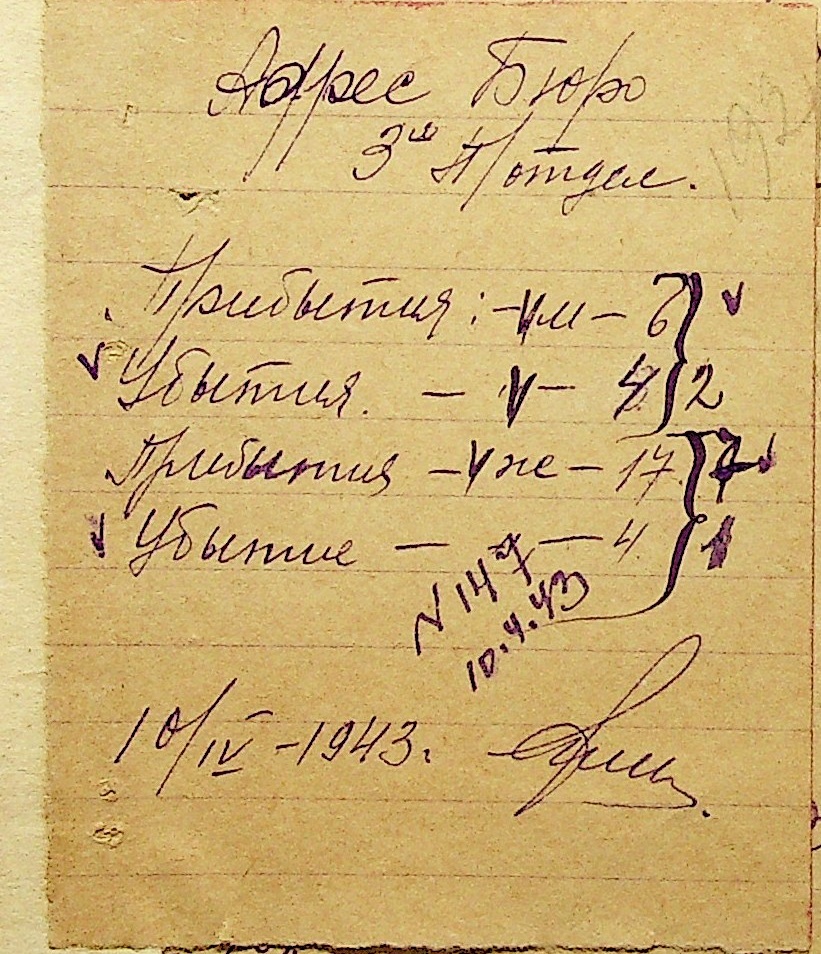 Адрес Бюро
3ий П/отдел.
Прибытия: – V м – 6 } V
V Убытия. – V – 4 } 2
Прибытия – V же – 17 } 7 V
V Убытие – " – 4 } 1
N 147
10.4.43
10/IV – 1943 г.